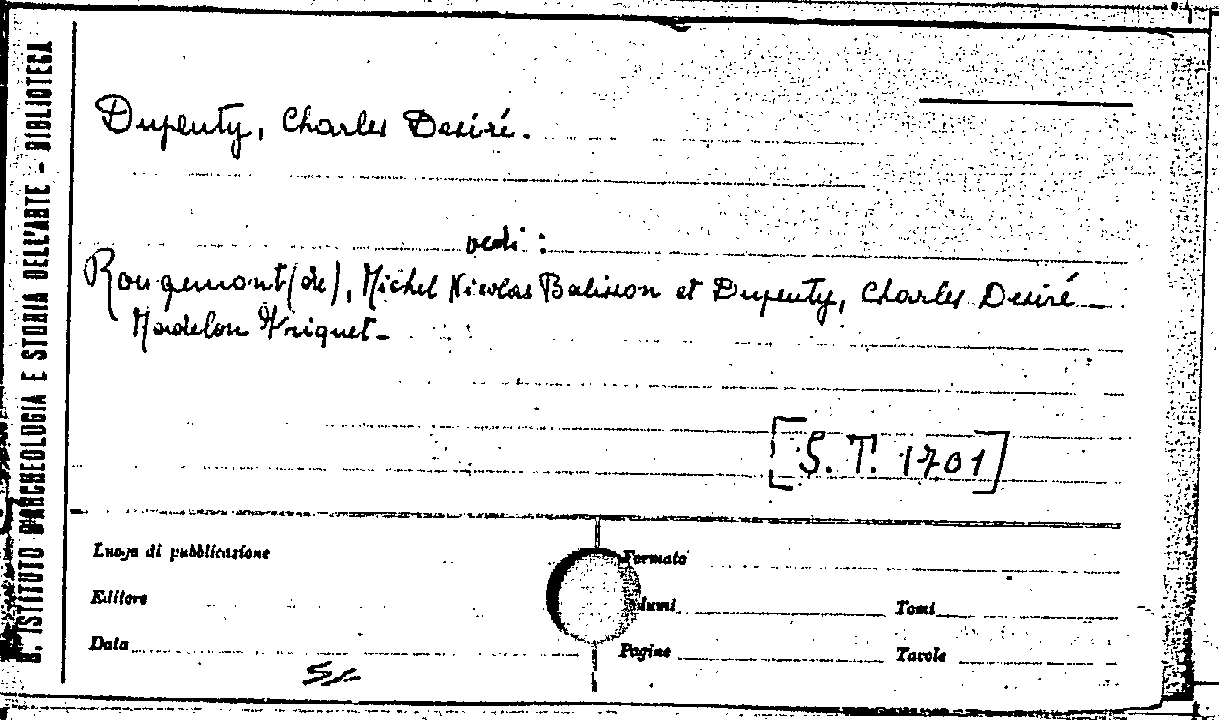 R. ISTITUTO D'ARCHEOLOGIA E STORIA DELL'ARTE - BIBLIOTECA
Dupeuty, Charles Desiré.
vedi :
Rougemont (de), Michel Nicolas Balisson et Dupeuty, Charles Desiré
Madelon Friquet
[S. T. 1701]
Luogo di pubblicazione
Formato
Editore
Tomi
Data
Pagine
Tavole